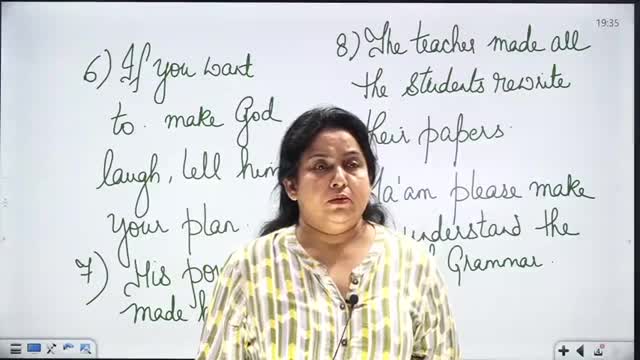 19:35
6) If you want
to. make God
laugh, tell him
your plan.
7) His
made
8) The teacher made all
the students rewrite
their papers.
Ma'am please make
understand the
Grammar.